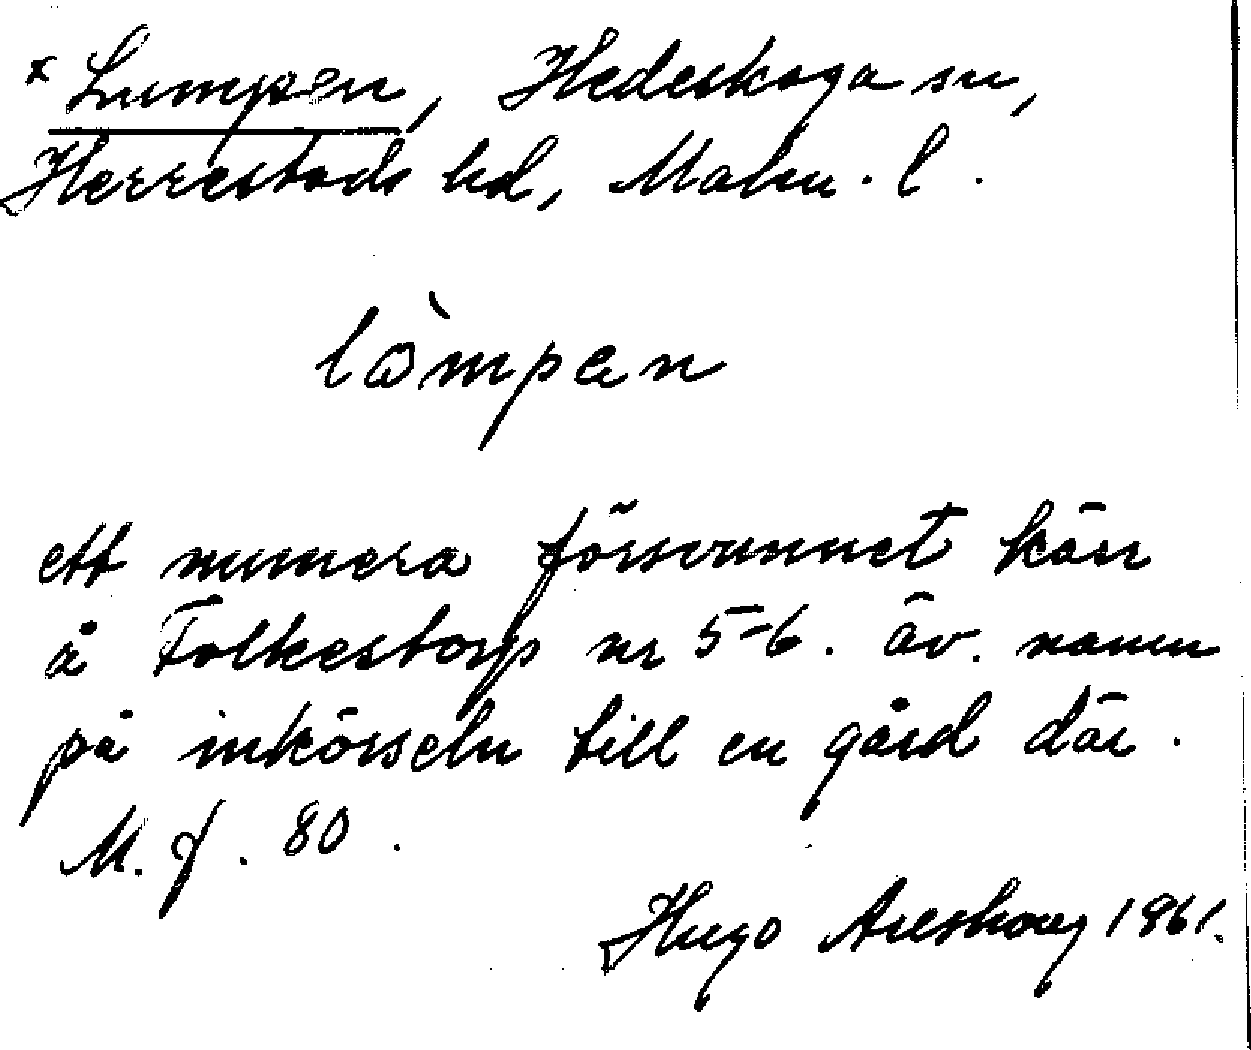 x Lumpen, Hedeskoga sn,
Herrestads hd, Malm. l.
lòmpen
ett numera försvunnet kärr
å Folkestorp nr 5-6. äv. namn
på inkörseln till en gård där.
M. f. 80.
Hugo Areskoug 1961.